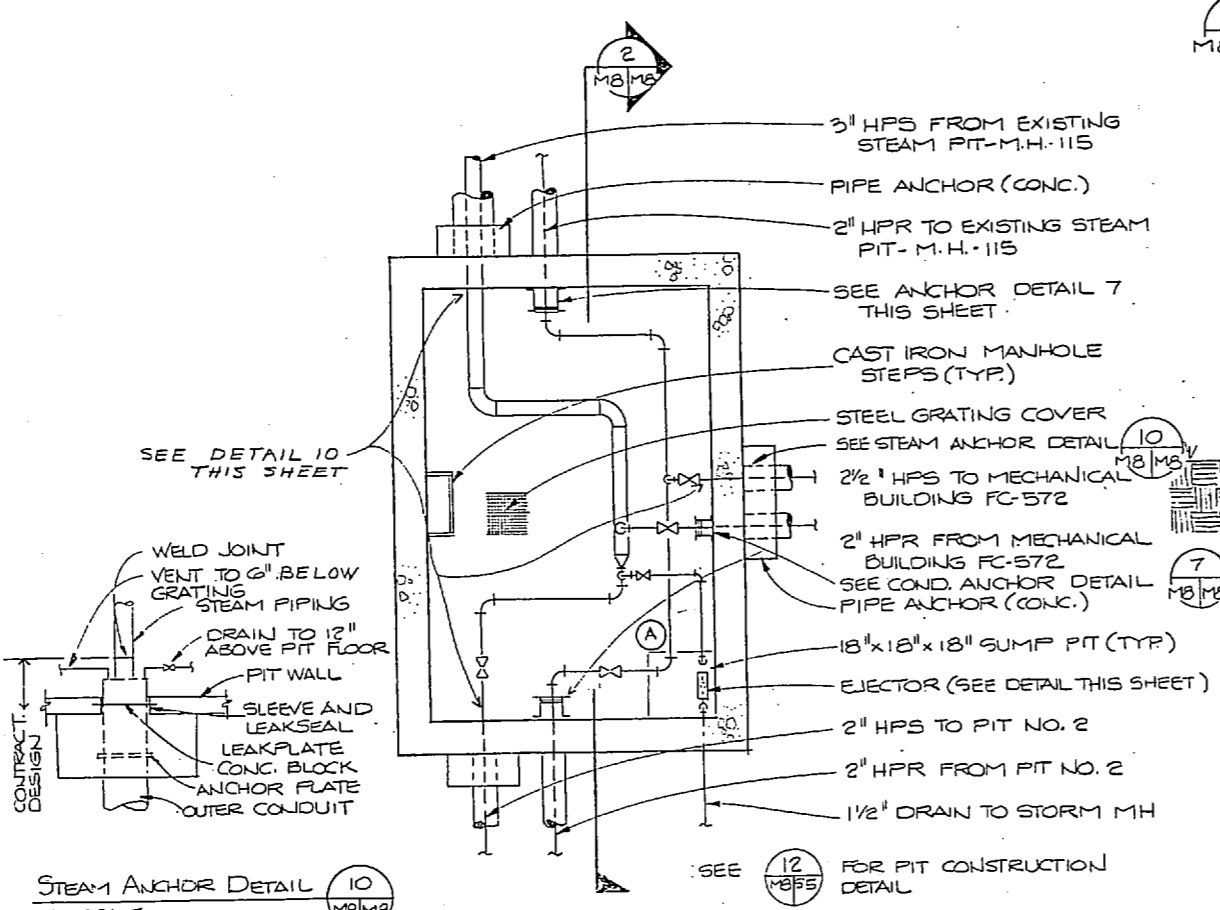 2
M8 M8
3" HPS FROM EXISTING
STEAM PIT-M.H.-115
PIPE ANCHOR (CONC.)
2" HPR TO EXISTING STEAM
PIT- M.H.-115
SEE ANCHOR DETAIL 7
THIS SHEET
CAST IRON MANHOLE
STEPS (TYP.)
STEEL GRATING COVER
SEE STEAM ANCHOR DETAIL
10
M8 M8
2½" HPS TO MECHANICAL
BUILDING FC-572
2" HPR FROM MECHANICAL
BUILDING FC-572
SEE COND. ANCHOR DETAIL
7
M8 M8
PIPE ANCHOR (CONC.)
18"x18"x18" SUMP PIT (TYP.)
EJECTOR (SEE DETAIL THIS SHEET)
2" HPS TO PIT NO. 2
2" HPR FROM PIT NO. 2
1½" DRAIN TO STORM MH
SEE 12 FOR PIT CONSTRUCTION
DETAIL
A
SEE DETAIL 10
THIS SHEET
WELD JOINT
VENT TO 6" BELOW
GRATING
STEAM PIPING
DRAIN TO 12"
ABOVE PIT FLOOR
PIT WALL
SLEEVE AND
LEAKSEAL
LEAKPLATE
CONC. BLOCK
ANCHOR PLATE
OUTER CONDUIT
CONTRACT
DESIGN
STEAM ANCHOR DETAIL 10